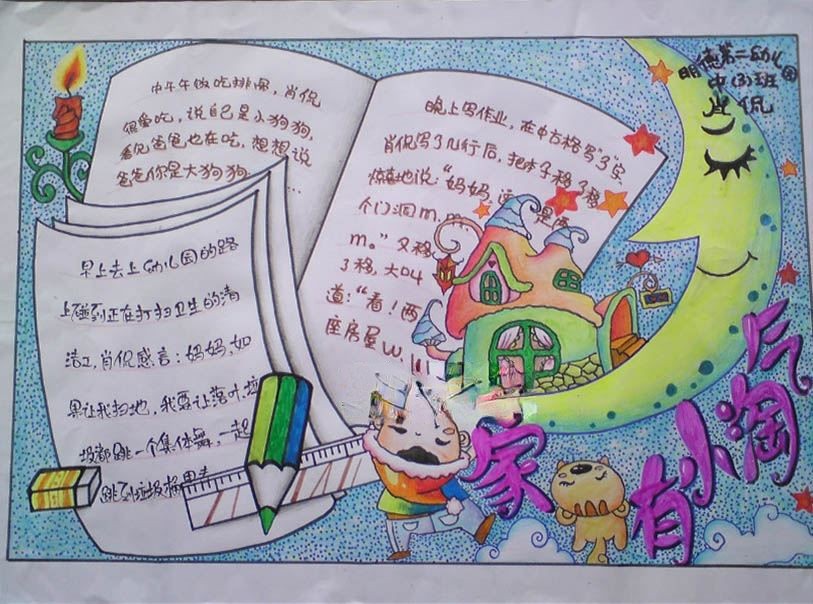 中午午做吃排骨，肖侃
很爱吃，说自己是小狗狗，
看见爸爸也在吃，想想说
爸爸你是大狗狗……
晚上写作业，在中方格写了"宝
肖侃写了几行后，把本子移了移
惊喜地说："妈妈，这 是两
个门洞m.m.
m。"又移
了移，大叫
道："看！两
座房屋w.w
早上去上幼儿园的路
上碰到正在打扫卫生的清
洁工，肖侃感言：妈妈，如
果让我扫地，我要让落叶、垃
圾都跳一个集体舞，一起
跳到垃圾桶里去
明德第二幼儿园
中(3)班
肖侃
家有小淘气